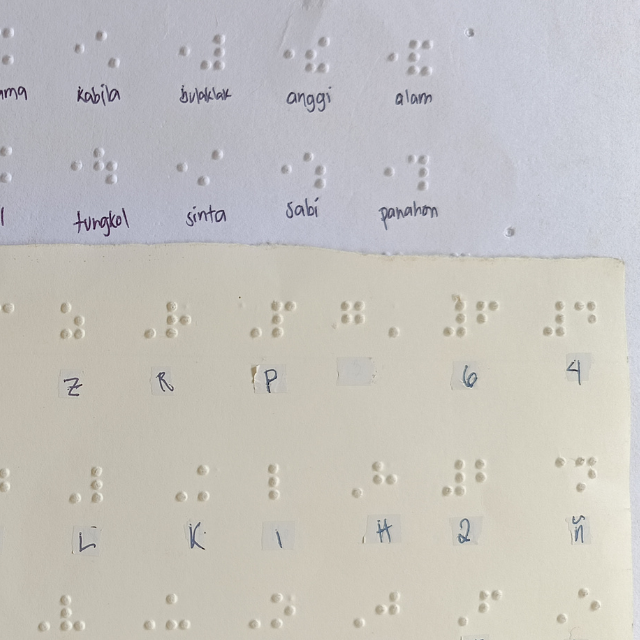 kabila bulaklak anggi alam
tungkol sinta sabi panahon
Z R P 6 4
L K I H 2 ñ